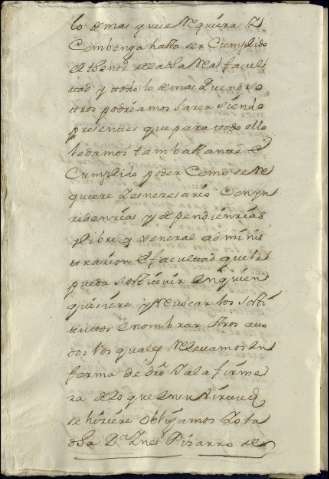 lo demas que se rrequiera y
Combenga hasta ser Cumplido
el thenor de la dha Rl facul
tad y todo lo demas que noso
tros podriamos haser siendo
presentes que para todo ello
le damos tam bastante e
Cumplido poder Como se rre
quiere y es necesario Con yn
sidencias y dependencias
y libre y general adminis
trazion e facultad que le
pueda sostituir en quien
quisiere y rrevocar los sosti
tutos e nombrar otros a to
dos los quales rrelevamos en
forma de dro y a la firme
za de lo que en su virtud
se hiziere obligamos yo la
dha Da Ynes Pizarro